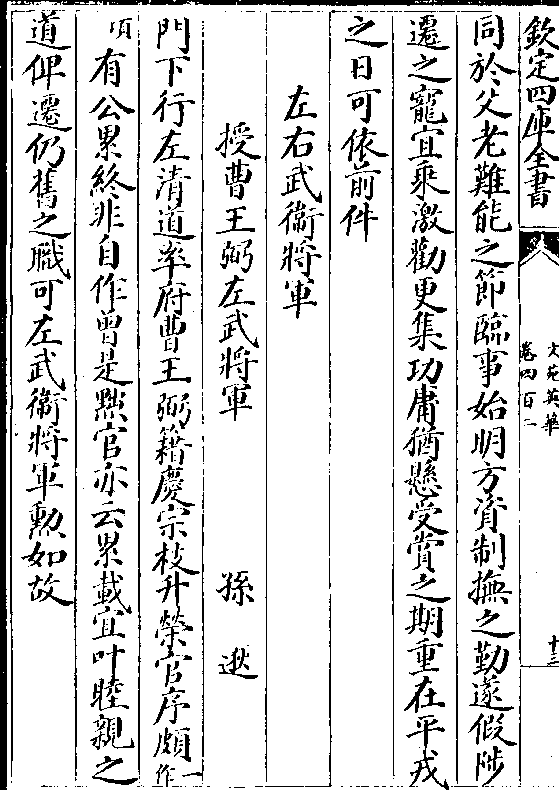 欽定四庫全書
文苑英華
卷四百二
十三
同於父老難能之節臨事始明方資制撫之勤遂假陟
遷之寵宜乗激勸更集功庸猶懸受賞之期重在平戎
之日可依前件
左右武衛將軍
授曹王弼左武將軍 孫逖
門下行左清道率府曹王弼籍慶宗枝升榮官序頗一作
項有公累終非自作曽是黜官亦云累載宜叶睦親之
道俾遷仍舊之職可左武衛將軍勲如故